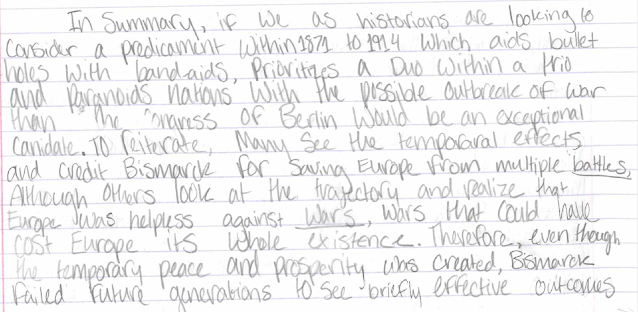 In Summary, if we as historians are looking to
Consider a predicament within 1871 to 1914 which aids bullet
holes with bandaids, Prioritizes a Duo within a trio
and Paranoids nations with the possible outbreak of war
than the Congress of Berlin would be an exceptional
canidate. To reiterate, Many see the temporaral effects
and credit Bismarck for saving Europe from multiple battles,
Although others look at the trajectory and realize that
Europe was helpless against wars, wars that could have
cost Europe its whole existence. Therefore, even though
the temporary peace and prosperity was created, Bismarck
Failed future generations to see briefly effective outcomes